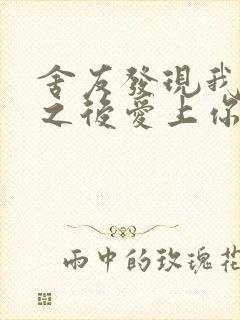 舍友發現我
之後愛上你
雨中的玫瑰花